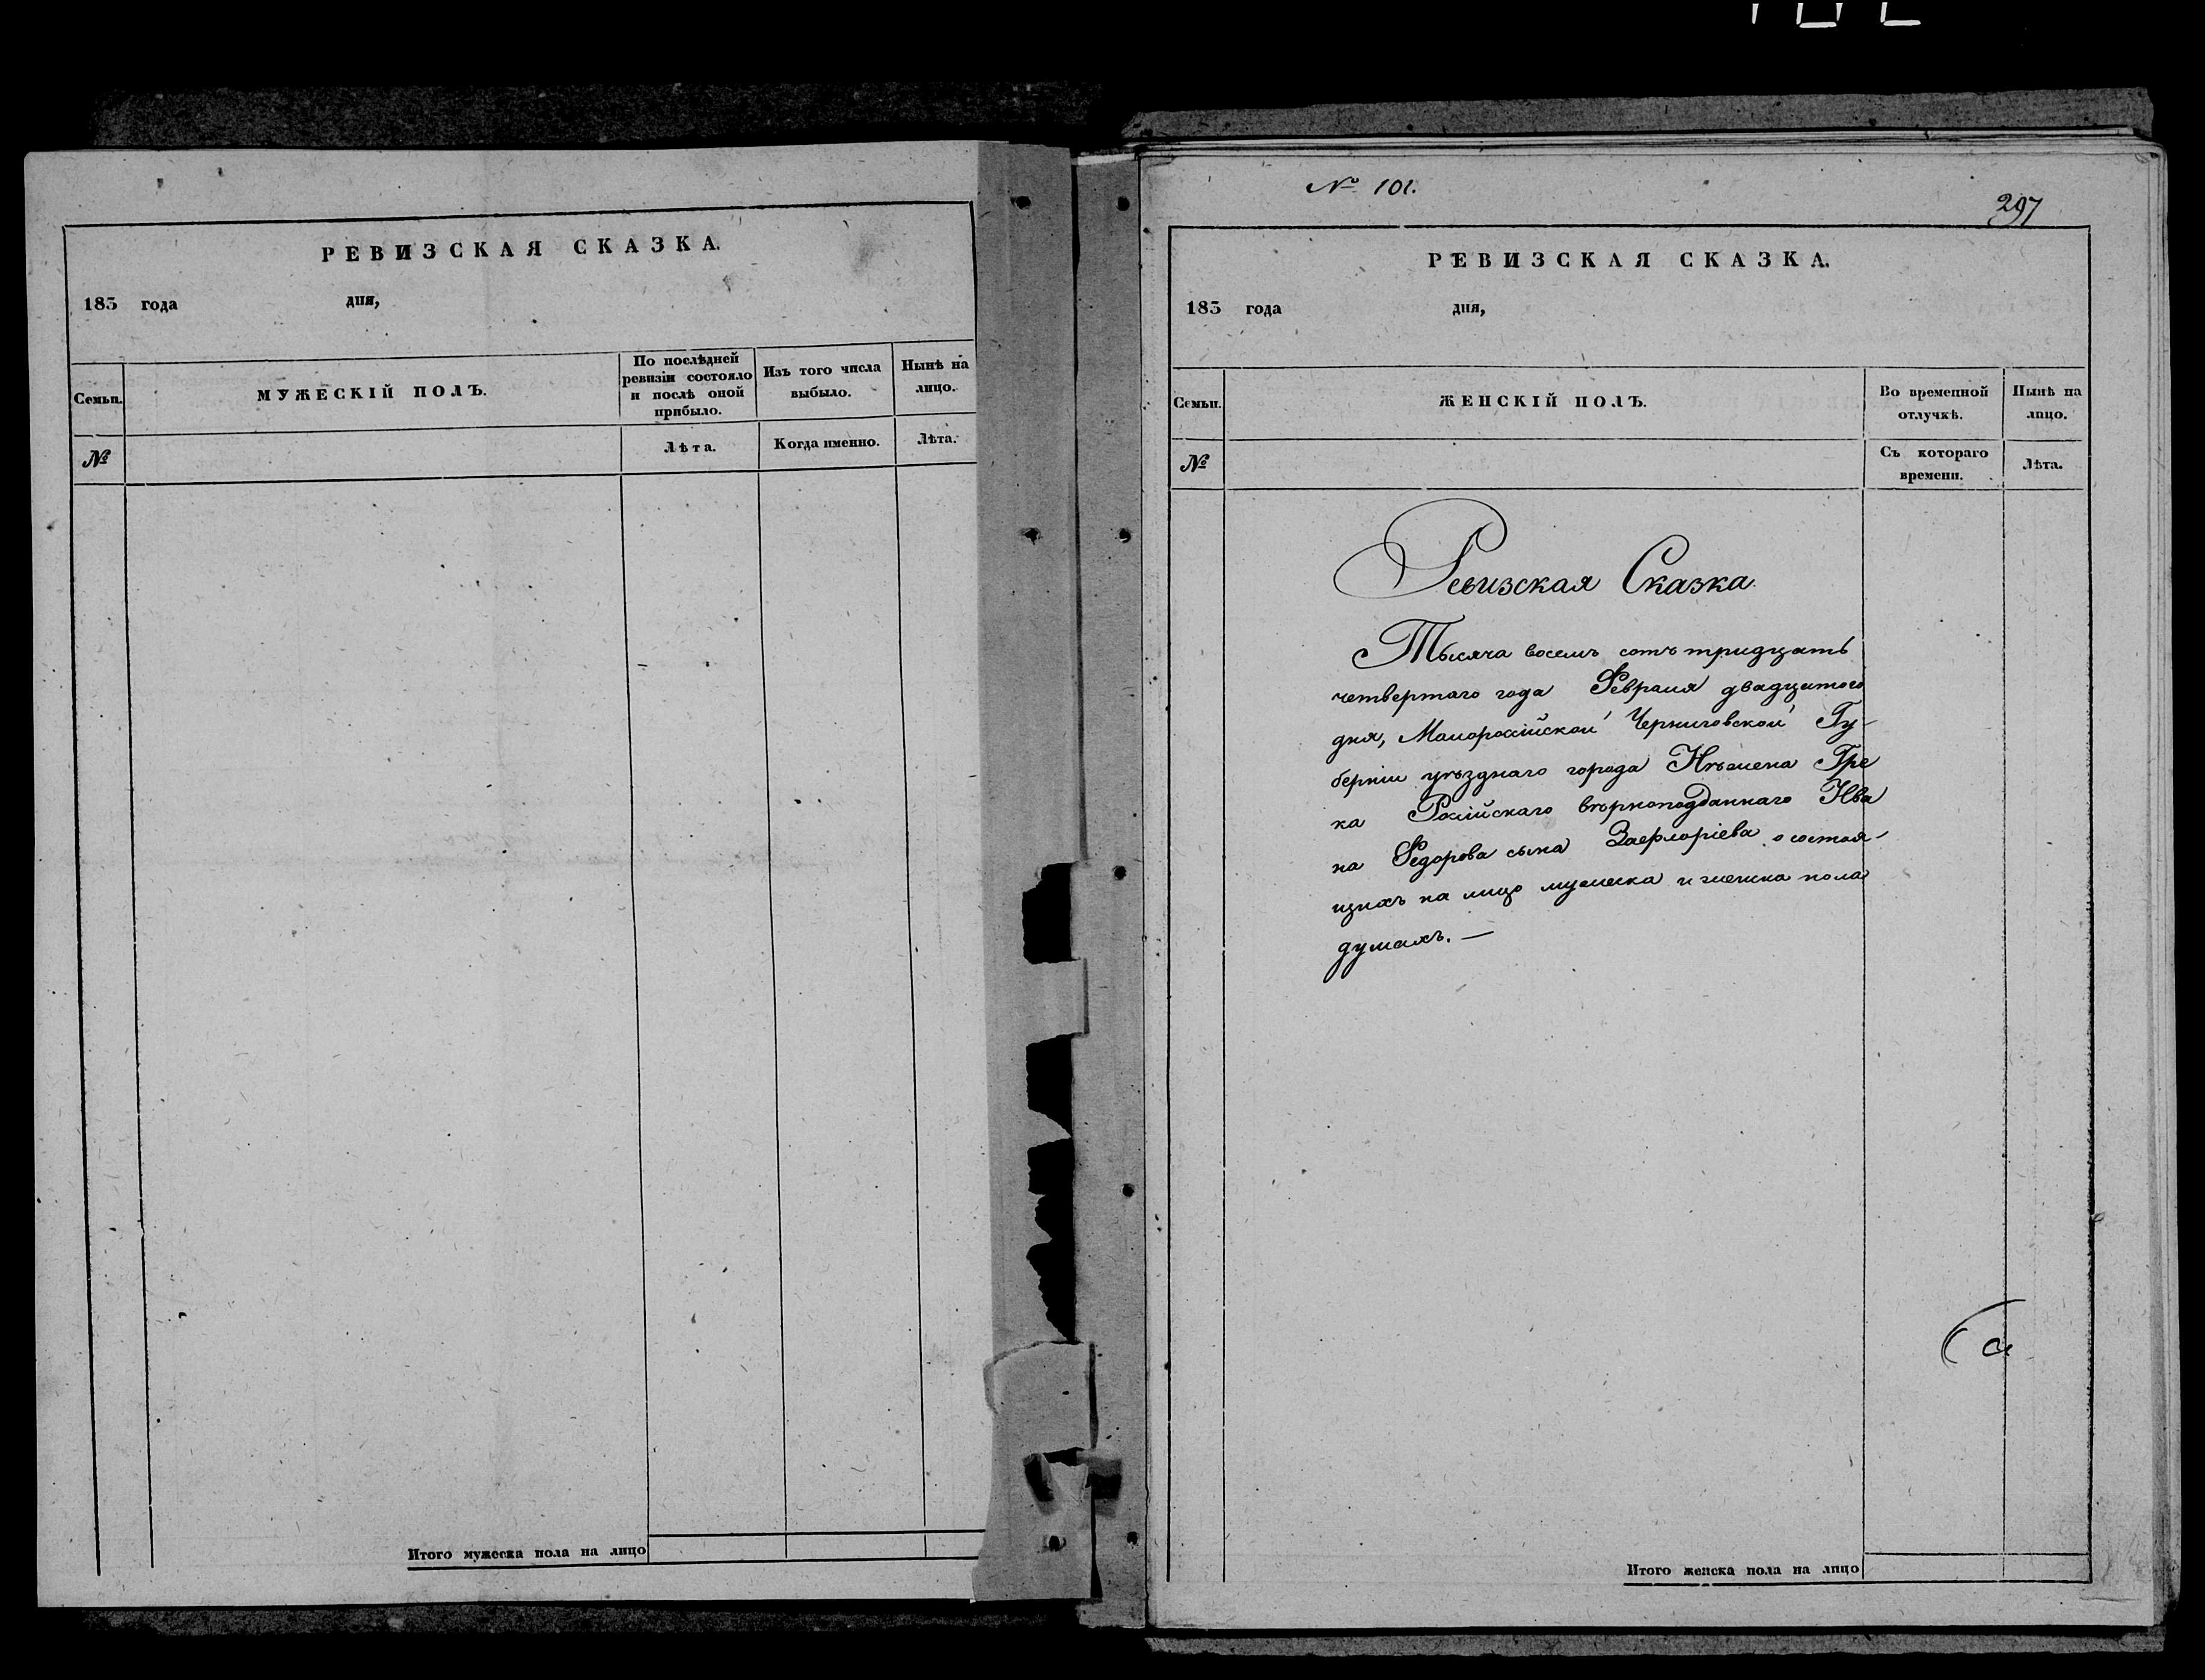 РЕВИЗСКАЯ СКАЗКА.
183 года дня,
Семьи.
МУЖЕСКІЙ ПОЛЪ.
По послѣдней
ревизіи состояло
и послѣ оной
прибыло.
Изъ того числа
выбыло.
Нынѣ на
лицо.
№
Лѣта.
Когда именно.
Лѣта.
Итого мужеска пола на лицо
№ 101.
297
РЕВИЗСКАЯ СКАЗКА.
183 года дня,
Семьи.
ЖЕНСКІЙ ПОЛЪ.
Во временной
отлучкѣ.
Нынѣ на
лицо.
№
Съ котораго
времени.
Лѣта.
Ревизская Сказка.
Тысяча восемъ сотъ тридцать
четвертаго года Февраля двадцатого
дня, Малоросійской Черниговской Гу-
берніи уѣзднаго города Нѣжена Гре
ка Російскаго вѣрноподданнаго Ива
на Федорова сына Заефлоріева о состоя-
щихъ на лицо мужеска и женска пола
душахъ. —
Итого женска пола на лицо